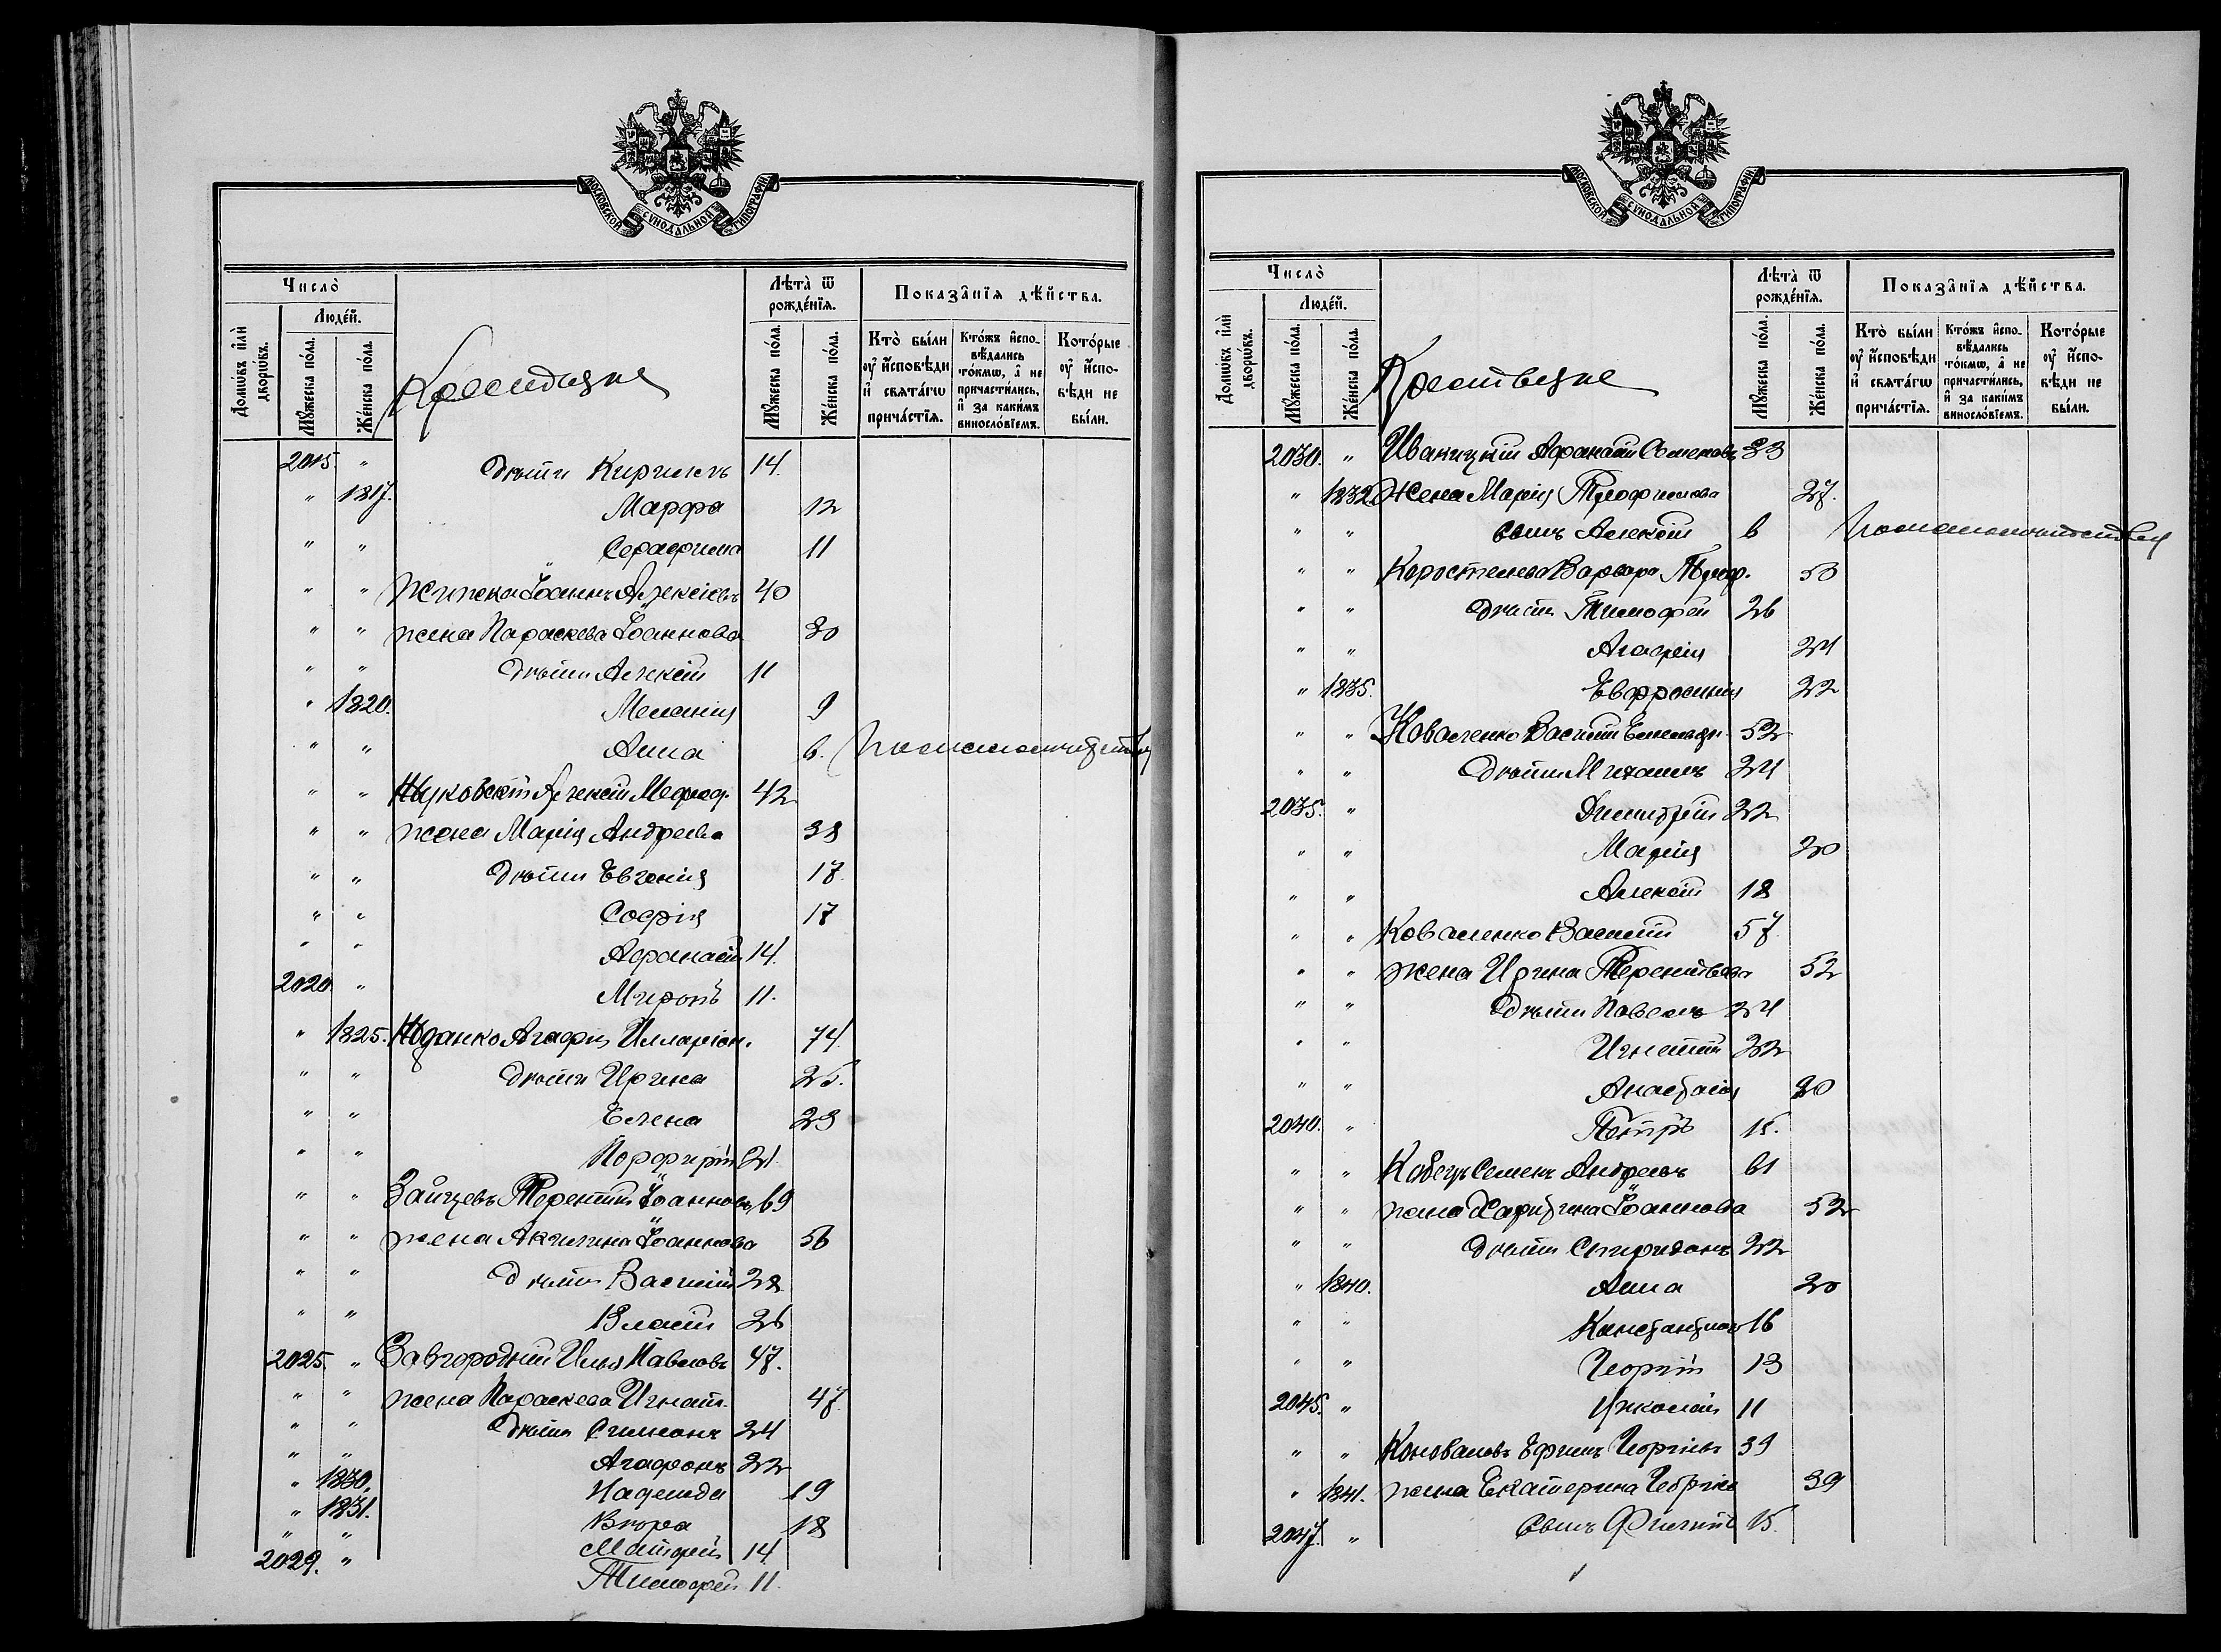 МОСКОВСКОЙ СУНОДАЛЬНОЙ ТИПОГРАФІИ
Число̀
Домѡвъ и҆лѝ дворѡвъ.
Люде́й.
Мꙋ́жеска по́ла.
Же́нска по́ла.
Крестьяне
Лѣта̀ ѿ рожде́нїѧ.
Мꙋ́жеска по́ла.
Же́нска по́ла.
Показа̑нїѧ дѣ́йства.
Кто̀ бы́ли оу҆ и҆́сповѣди и҆ свѧта́гѡ прича́стїѧ.
Кто́жъ и҆спо-вѣ́дались то́кмѡ, а҆ не причасти́лись, и҆ за каки́мъ винослóвїемъ.
Кото́рые оу҆ и҆́спо-вѣди не бы́ли.
2015. " дѣти Кириллъ 14.
" 1817. Марфа 12
" " Серафима 11
" " Жилека Іоаннъ Алексіевъ 40
" " жена Параскева Іоаннова 30
" " дѣти Алексій 11
" 1820. Меланія 9
" " Анна 6. по малолѣтству
" " Жуковскій Алексій Мефод. 42
" " жена Марія Андреева 38
" " дѣти Евгенія 17.
" " Софія 17
" " Афанасій 14.
2020 " Миронъ 11.
" 1825. Жданко Агафія Илларіон. 74.
" " дѣти Ирина 25.
" " Елена 23
" " Порфирій 21.
" " Зайцевъ Терентій Іоанновъ 69
" " жена Акилина Іоаннова 56
" " дѣти Василій 28
" " Власій 26
2025. " Завгородній Илья Павловъ 47.
" " жена Параскева Игнат. 47.
" " дѣти Симеонъ 24
" " Агафонъ 22
" 1830. Надежда 19
" 1831. Вѣра 18
" " Матфей 14
2029. " Тимофей 11.
МОСКОВСКОЙ СУНОДАЛЬНОЙ ТИПОГРАФІИ
Число̀
Домѡвъ и҆лѝ дворѡвъ.
Люде́й.
Мꙋ́жеска по́ла.
Же́нска по́ла.
Крестьяне
Лѣта̀ ѿ рожде́нїѧ.
Мꙋ́жеска по́ла.
Же́нска по́ла.
Показа̑нїѧ дѣ́йства.
Кто̀ бы́ли оу҆ и҆́сповѣди и҆ свѧта́гѡ прича́стїѧ.
Кто́жъ и҆спо-вѣ́дались то́кмѡ, а҆ не причасти́лись, и҆ за каки́мъ винослóвїемъ.
Кото́рые оу҆ и҆́спо-вѣди не бы́ли.
2030. " Ивницкій Афанасій Семеновъ 33
" 1832 Жена Марія Трофимова 27.
" " сынъ Алексій 6 по малолѣтству
" " Коростелева Варвара Троф. 50
" " дѣти Тимофей 26
" " Агафія 24
" 1835. Евфросинія 22
" " Коваленко Василій Емельян. 52
" " дѣти Михаилъ 24
2035. " Димитрій 22
" " Марія 20
" " Алексій 18
" " Коваленко Василій 57
" " жена Ирина Терентьева 52
" " дѣти Павелъ 24
" " Игнатій 22
" " Анастасія 20
2040. " Петръ 15.
" " Кобецъ Семенъ Андреевъ 61
" " жена Харитина Іоаннова 52
" " дѣти Спиридонъ 22
" 1840. Анна 20
" " Константинъ 16
" " Георгій 13
2045. " Николай 11
" " Коноваловъ Ефимъ Георгіевъ 39
" 1841. жена Екатерина Георгіев 39
2047. " сынъ Филиппъ 15.